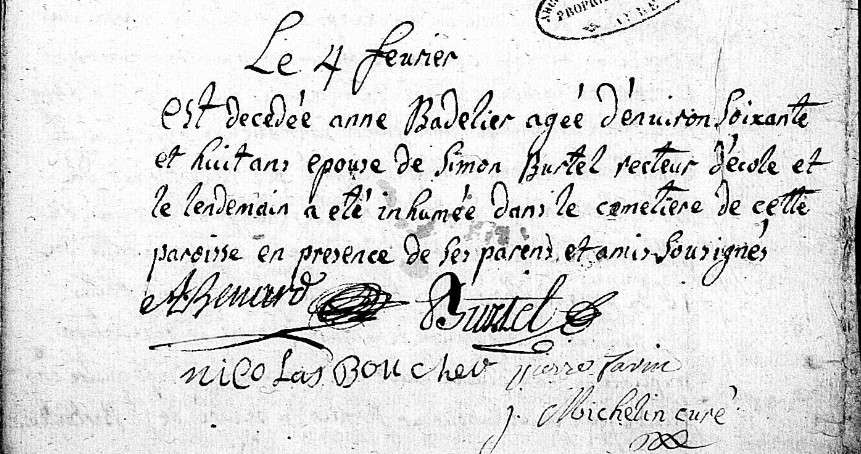 PROPRI
Le 4 feurier
est decedée anne Badelier ageé d'enuiron soixante
et huit ans epouse de Simon Burtel recteur d'école et
le lendemain a eté inhumée dans le cemetiere de cette
paroisse en presence de ses parens et amis sousignés
ABenard Burtel
nicolas Boucher pierre farin
j. Michelin curé